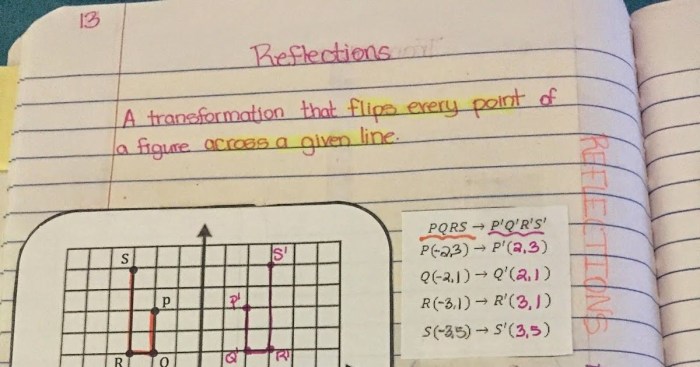 13
Reflections
A transformation that flips every point of
a figure across a given line.
REFLECTIONS
PQRS → P'Q'R'S'
P(-2,3) → P'(2,3)
Q(-2,1) → Q'(2,1)
R(-3,1) → R'(3,1)
S(-3,5) → S'(3,5)
S
S'
P
P'
R
Q
Q'
R'